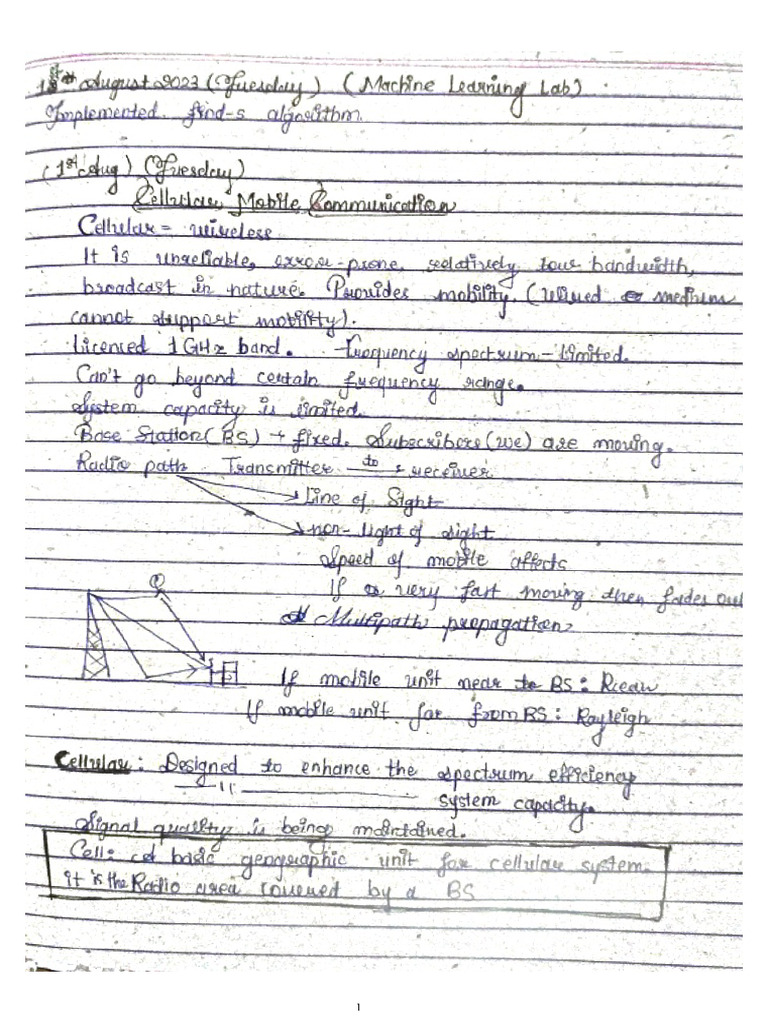 1st August 2023 (Tuesday) (Machine Learning Lab)
Implemented find-s algorithm.
(1st Aug) (Tuesday)
Cellular Mobile Communication
Cellular = wireless
It is unreliable, error-prone, relatively low bandwidth,
broadcast in nature. Provides mobility. (Wired medium
cannot support mobility).
Licenced 1GHz band. Frequency spectrum - Limited.
Can't go beyond certain frequency range.
System capacity is limited.
Base Station (BS) → fixed. Subscribers (we) are moving.
Radio path Transmitter to receiver
Line of Sight
non-light of sight
Speed of mobile affects
If very fast moving then fades out
Multipath propagation
If mobile unit near to BS: Ricean
If mobile unit far from BS: Rayleigh
Cellular: Designed to enhance the spectrum efficiency
—— 11 —— system capacity.
Signal quality is being maintained.
Cell: A basic geographic unit for cellular system.
it is the Radio area covered by a BS
1